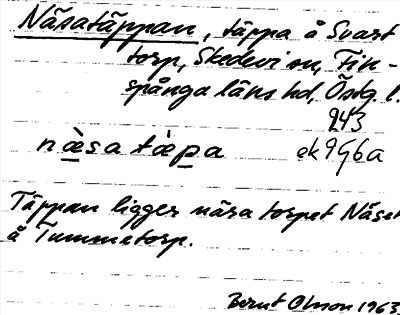 Näsatäppan, täppa å Svart
torp, Skedevi sn, Fin-
spånga läns hd, Östg. l.
943
næ̀sa tæ̀pa ek 9g6a
Täppan ligger nära torpet Näset
å Tummetorp.
Bernt Olsson 1963